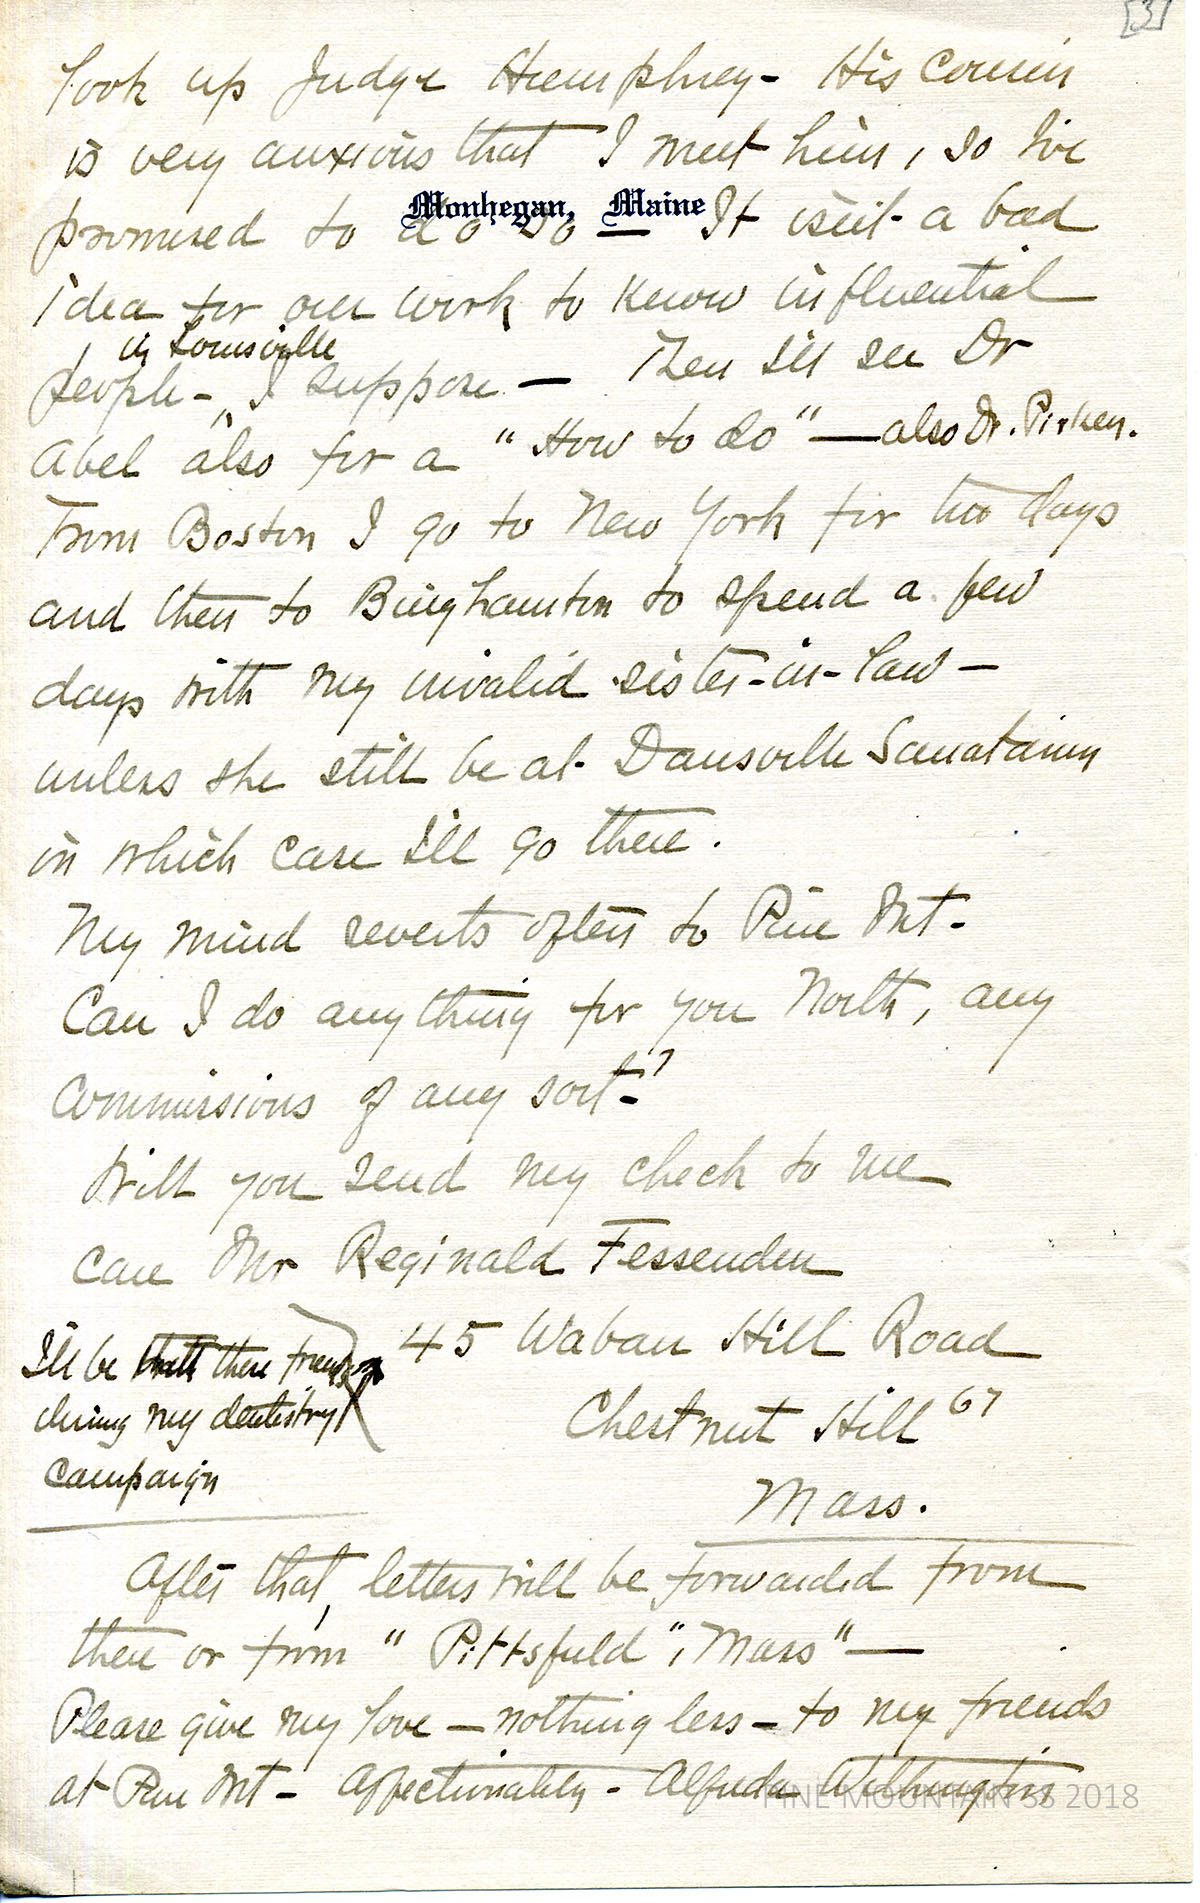 [3]
look up Judge Humphrey - His cousin
is very anxious that I meet him, so I've
Monhegan, Maine
promised to do so — It isn't a bad
idea for our work to know influential
in Louisville
people - I suppose — Then I'll see Dr
Abel also for a "How to do" — also Dr. Pirkey.
From Boston I go to New York for two days
and then to Binghamton to spend a few
days with my invalid sister-in-law —
unless she still be at Dansville Sanatarium
in which case I'll go there.
My mind reverts often to Pine Mt.
Can I do anything for you North, any
commissions of any sort?
Will you send my check to me
care Mr Reginald Fessenden
45 Waban Hill Road
Chestnut Hill 67
Mass.
I'll be with these friends
during my dentistry
campaign
After that, letters will be forwarded from
there or from "Pittsfield", Mass" —
Please give my love — nothing less — to my friends
at Pine Mt - Affectionately - Alfreda Withington
PINE MOUNTAIN SS 2018